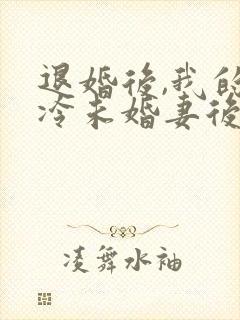 退婚後,我的
冷未婚妻後
凌舞水袖